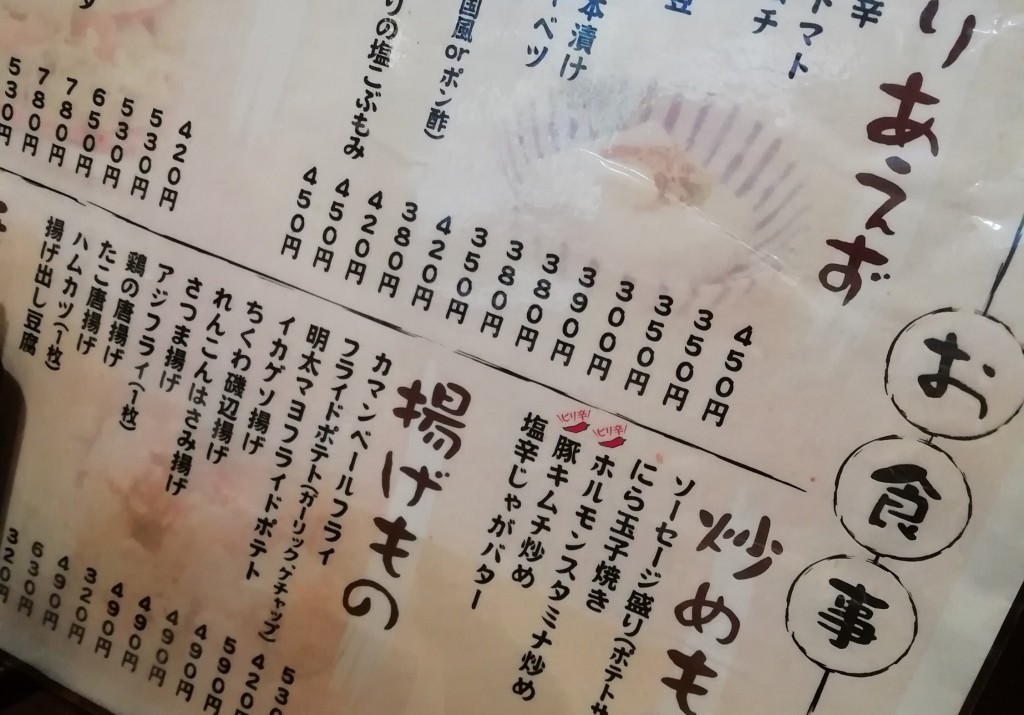 お食事
りあえず
辛
トマト
チ
豆
本漬け
ベツ
国風orポン酢)
りの塩こぶもみ
450円
350円
350円
300円
390円
380円
380円
350円
420円
380円
420円
450円
450円
420円
530円
530円
650円
780円
780円
530円
炒めも
ソーセージ盛り(ポテトサ
にら玉子焼き
ピリ辛!
ホルモンスタミナ炒め
ピリ辛!
豚キムチ炒め
塩辛じゃがバター
揚げもの
カマンベールフライ
フライドポテト(ガーリック・ケチャップ)
明太マヨフライドポテト
イカゲソ揚げ
ちくわ磯辺揚げ
れんこんはさみ揚げ
さつま揚げ
アジフライ(1枚)
鶏の唐揚げ
たこ唐揚げ
ハムカツ(1枚)
揚げ出し豆腐
530
420円
590円
490円
490円
490円
490円
320円
490円
630円
320円